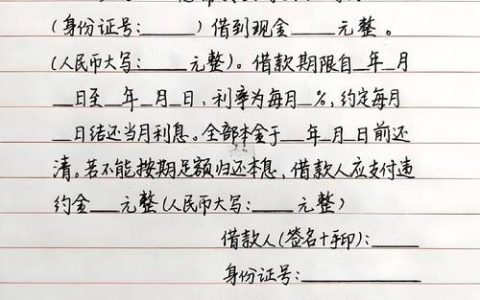 (身份证号:_____)借到现金____元整。
(人民币大写:____元整)。借款期限自__年__月
__日至__年__月__日,利率为每月__%,约定每月
__日结还当月利息。全部本金于__年__月__日前还
清。若不能按期足额归还本息,借款人应支付违
约金___元整(人民币大写:____元整)
借款人(签名+手印):____
身份证号:____________